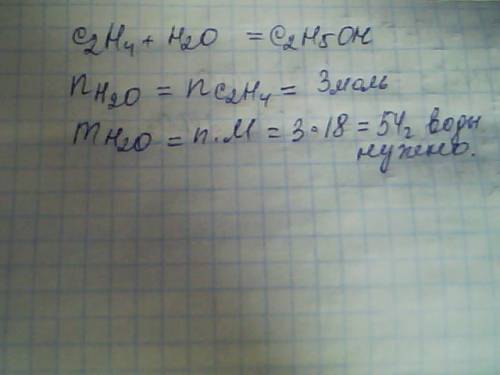 C₂H₄ + H₂O = C₂H₅OH
n H₂O = n C₂H₄ = 3 моль
m H₂O = n · M = 3 · 18 = 54 г воды
нужно.